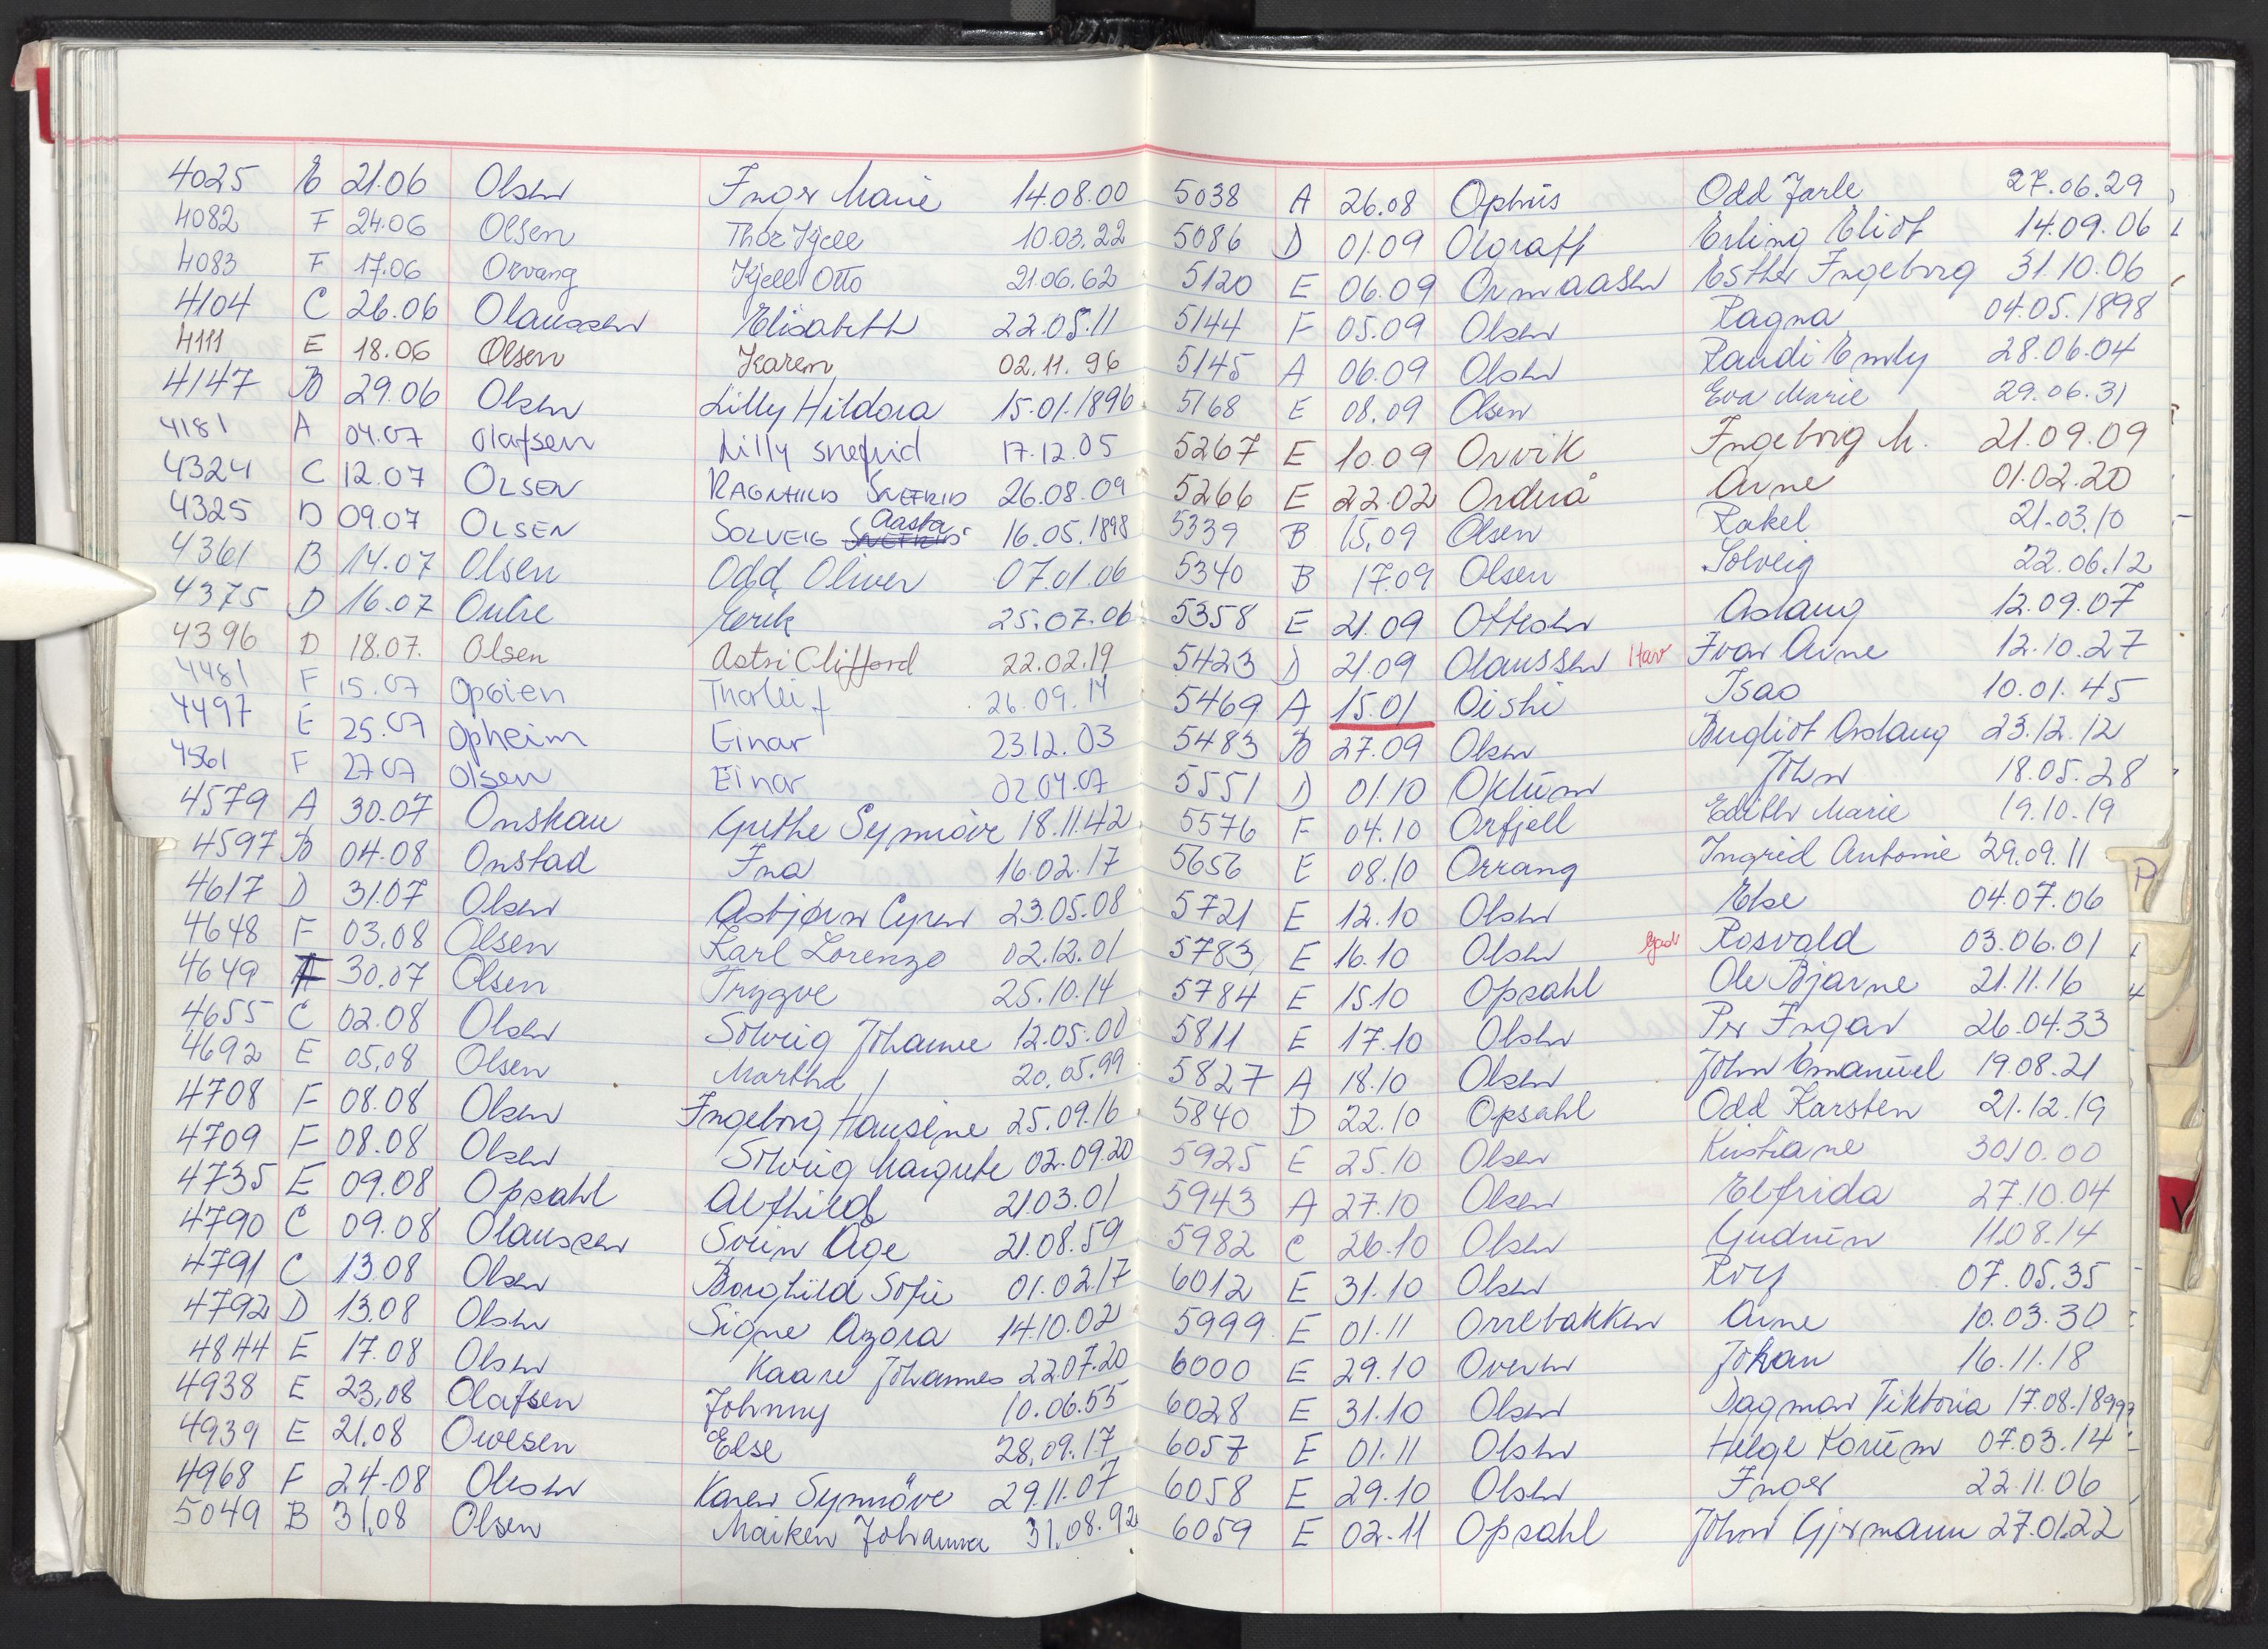 4025 E 21.06 Olsen Inger Marie 14.08.00
4082 F 24.06 Olsen Thor Kjell 10.03.22
4083 F 17.06 Orvang Kjell Otto 21.06.62
4104 C 26.06 Olaussen Elisabeth 22.05.11
4111 E 18.06 Olsen Karen 02.11.96
4147 B 29.06 Olsen Lilly Hildora 15.01.1896
4181 A 04.07 Olafsen Lilly Snefrid 17.12.05
4324 C 12.07 OLSEN RAGNHILD SNEFRID 26.08.09
4325 D 09.07 OLSEN SOLVEIG Aasta 16.05.1898
4361 B 14.07 Olsen Odd Oliver 07.01.06
4375 D 16.07 Oulie Erik 25.07.06
4396 D 18.07. Olsen Astri Clifford 22.02.19
4481 F 15.07 Opoien Thorleif 26.09.14
4497 E 25.07 Opheim Einar 23.12.03
4561 F 27.07 Olsen Einar 02.04.07
4579 A 30.07 Onshau Grethe Synnöve 18.11.42
4597 B 04.08 Onstad Ina 16.02.17
4617 D 31.07 Olsen Asbjørn Cyren 23.05.08
4648 F 03.08 Olsen Karl Lorenzo 02.12.01
4649 30.07 Olsen Trygve 25.10.14
4655 C 02.08 Olsen Solveig Johanne 12.05.00
4692 E 05.08 Olsen Martha 20.05.99
4708 F 08.08 Olsen Ingeborg Hansine 25.09.16
4709 F 08.08 Olsen Solveig Margrete 02.09.20
4735 E 09.08 Opsahl Alfhild 21.03.01
4790 C 09.08 Olaussen Svein Åge 21.08.59
4791 C 13.08 Olsen Borghild Sofie 01.02.17
4792 D 13.08 Olsen Signe Azora 14.10.02
4844 E 17.08 Olsen Kaare Johannes 22.07.20
4938 E 23.08 Olafsen Johnny 10.06.55
4939 E 21.08 Ovesen Else 28.09.17
4968 F 24.08 Olsen Karen Synnöve 29.11.07
5049 B 31.08 Olsen Maiken Johanna 31.08.92
5038 A 26.08 Ophus Odd Jarle 27.06.29
5086 D 01.09 Olgraff Erling Eliot 14.09.06
5120 E 06.09 Ormaasen Esther Ingeborg 31.10.06
5144 F 05.09 Olsen Ragna 04.05.1898
5145 A 06.09 Olsen Randi Emly 28.06.04
5168 E 08.09 Olsen Eva Marie 29.06.31
5267 E 10.09 Orvik Ingeborg M. 21.09.09
5266 E 22.02 Orderå Arne 01.02.20
5339 B 15.09 Olsen Rakel 21.03.10
5340 B 17.09 Olsen Solveig 22.06.12
5358 E 21.09 Ottesen Aslaug 12.09.07
5423 D 21.09 Olaussen Hav Ivar Arne 12.10.27
5469 A 15.01 Oishi Isao 10.01.45
5483 B 27.09 Olsen Bergliot Aslaug 23.12.12
5551 D 01.10 Oklum John 18.05.28
5576 F 04.10 Orfjell Edith Marie 19.10.19
5656 E 08.10 Orrang Ingrid Antonie 29.09.11
5721 E 12.10 Olsen Else 04.07.06
5783 E 16.10 Olsen Rosvald 03.06.01
5784 E 15.10 Opsahl Ole Bjarne 21.11.16
5811 E 17.10 Olsen Per Ingar 26.04.33
5827 A 18.10 Olsen John Emanuel 19.08.21
5840 D 22.10 Opsahl Odd Karsten 21.12.19
5925 E 25.10 Olsen Kristiane 30.10.00
5943 A 27.10 Olsen Elfrida 27.10.04
5982 C 26.10 Olsen Gudrun 11.08.14
6012 E 31.10 Olsen Roy 07.05.35
5999 E 01.11 Orrebakken Arne 10.03.30
6000 E 29.10 Overen Johan 16.11.18
6028 E 31.10 Olsen Dagmar Viktoria 17.08.1899
6057 E 01.11 Olsen Helge Korum 07.03.14
6058 E 29.10 Olsen Inger 22.11.06
6059 E 02.11 Opsahl John Gjermann 27.01.22
P
V